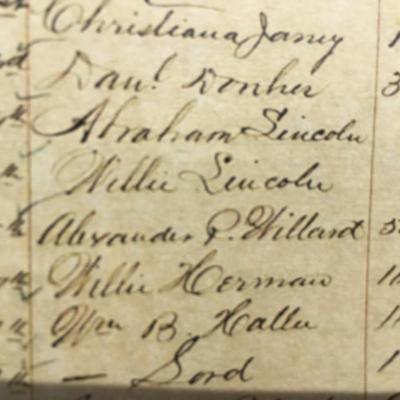 Christiana Janey
Danl. Donher
Abraham Lincoln
Willie Lincoln
Alexander P. Willard
Willie Herman
Wm B. Haller
— Lord